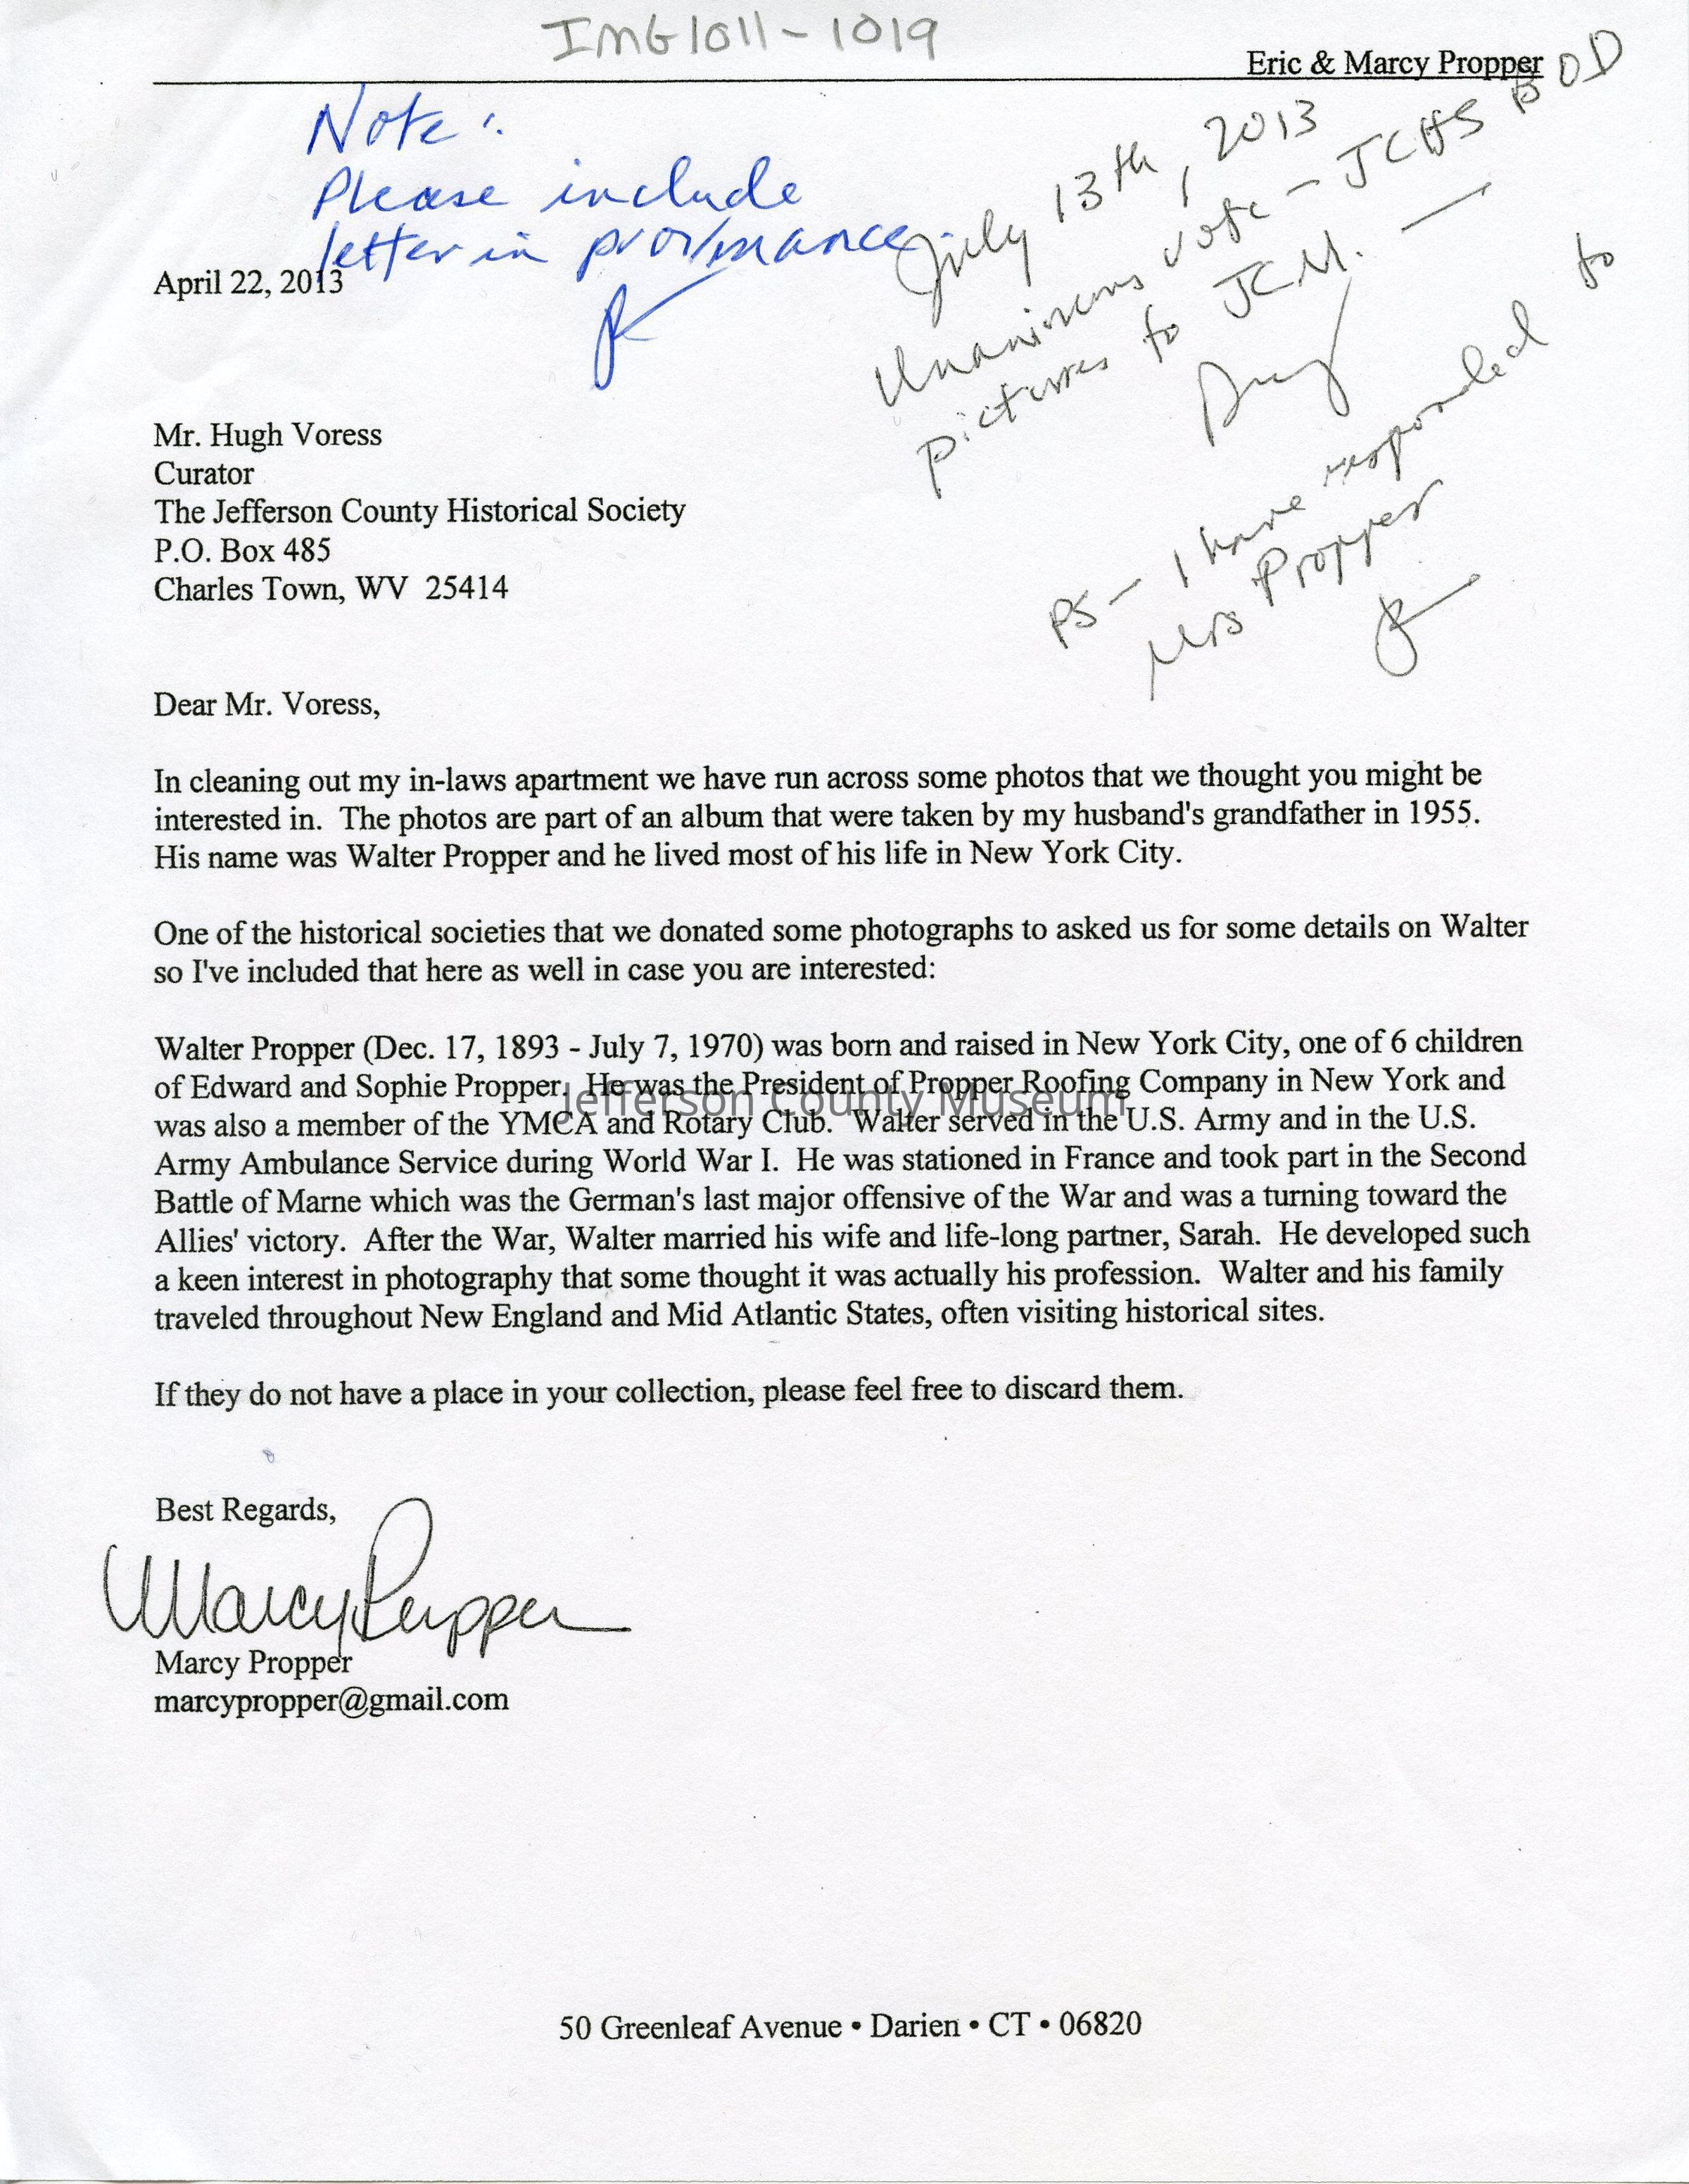 IMG1011-1019
Eric & Marcy Propper
Note:
Please include
letter in
July 13th, 2013
Unanimous vote - JCHS BOD
pictures to JCM. -
PS - I have responded to
Mrs Propper
April 22, 2013
Mr. Hugh Voress
Curator
The Jefferson County Historical Society
P.O. Box 485
Charles Town, WV 25414
Dear Mr. Voress,
In cleaning out my in-laws apartment we have run across some photos that we thought you might be
interested in. The photos are part of an album that were taken by my husband's grandfather in 1955.
His name was Walter Propper and he lived most of his life in New York City.
One of the historical societies that we donated some photographs to asked us for some details on Walter
so I've included that here as well in case you are interested:
Walter Propper (Dec. 17, 1893 - July 7, 1970) was born and raised in New York City, one of 6 children
of Edward and Sophie Propper. He was the President of Propper Roofing Company in New York and
Jefferson County Museum
was also a member of the YMCA and Rotary Club. Walter served in the U.S. Army and in the U.S.
Army Ambulance Service during World War I. He was stationed in France and took part in the Second
Battle of Marne which was the German's last major offensive of the War and was a turning toward the
Allies' victory. After the War, Walter married his wife and life-long partner, Sarah. He developed such
a keen interest in photography that some thought it was actually his profession. Walter and his family
traveled throughout New England and Mid Atlantic States, often visiting historical sites.
If they do not have a place in your collection, please feel free to discard them.
Best Regards,
Marcy Propper
Marcy Propper
marcypropper@gmail.com
50 Greenleaf Avenue • Darien • CT • 06820